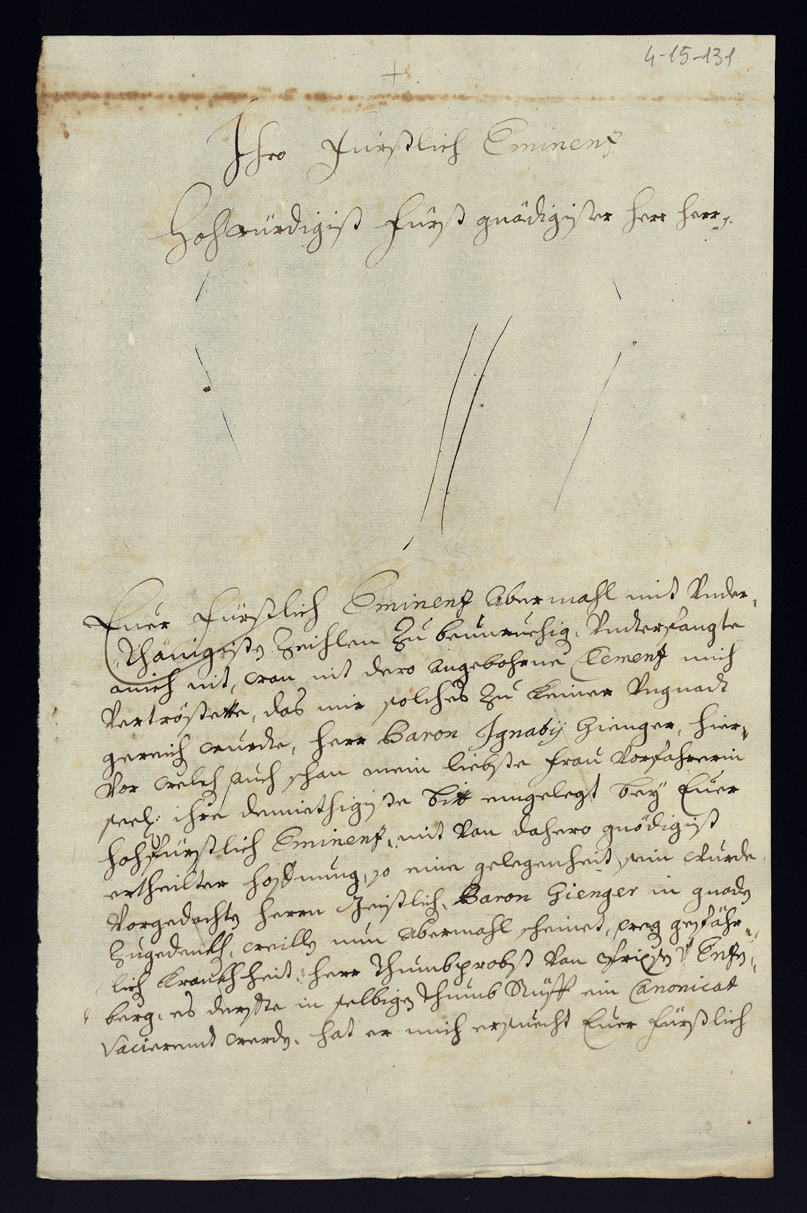 4-15-131
+
Ihro Fürstlich Eminenz
Hochwürdigist Fürst gnädigister Herr Herr
Euer Fürstlich Eminenz abermahl mit Under-
thänigisten Zeihlen zu beunruehig. Unterfangte
mich nit, wan nit dero angebohrne Clemenz mich
Vertröstette, das mir solches zu keiner Ungnadt
gereich wurde, Herr Baron Ignatÿ Gienger, hier-
Vor welch auch schan mein liebste Frau Vorfahrerin
seel: ihre demiethigiste bitt eingelegt beÿ Euer
hochfürstlich Eminenz, mit Von dahero gnädigist
ertheilter hoffnung, so eine gelegenheit sein wurde
Vorgedachten Herrn Geistlich. Baron Gienger in gnaden
Zugedenckh, weillen nun abermahl scheinet, weg gefähr-
lich Kranckhheit Herr Thumbprobst Von
berg, es derffte in selbigen Thumb Stüfft ein Canonicat
Vacierendt werden, hat er mich ersuecht Euer Fürstlich